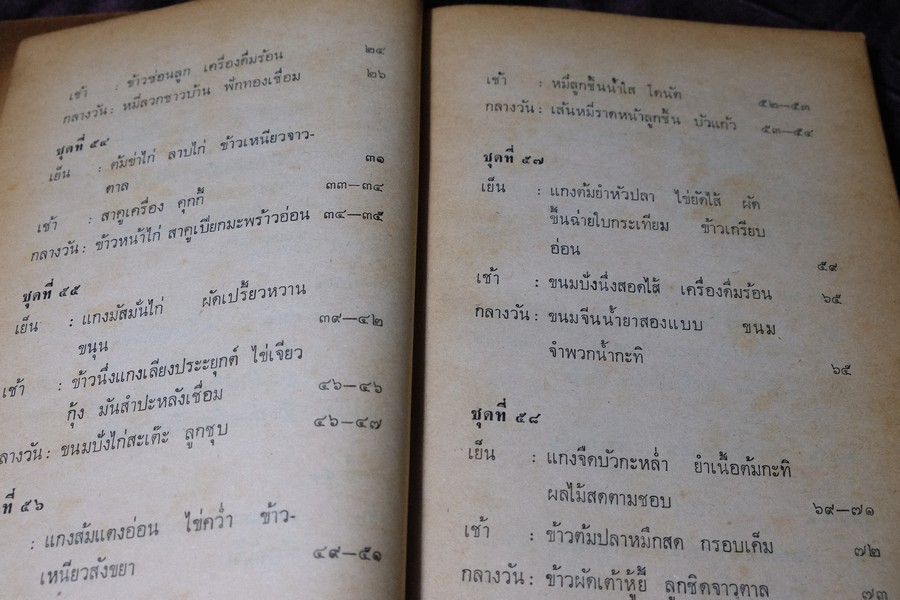 เช้า : ข้าวซ่อนลูก เครื่องดื่มร้อน ๒๔
กลางวัน : หมี่ลวกชาวบ้าน ฟักทองเชื่อม ๒๖
ชุดที่ ๕๔
เย็น : ต้มข่าไก่ ลาบไก่ ข้าวเหนียวจาว-
ตาล ๓๑
เช้า : สาคูเครื่อง คุกกี้ ๓๓—๓๔
กลางวัน : ข้าวหน้าไก่ สาคูเปียกมะพร้าวอ่อน ๓๔—๓๕
ชุดที่ ๕๕
เย็น : แกงมัสมั่นไก่ ผัดเปรี้ยวหวาน
ขนุน ๓๙—๔๒
เช้า : ข้าวนึ่งแกงเลียงประะยุกต์ ไข่เจียว
กุ้ง มันสำปะหลังเชื่อม ๔๖—๔๖
ลางวัน : ขนมปังไก่สะเต๊ะ ลูกชุบ ๔๖—๔๗
ที่ ๕๖
: แกงส้มแตงอ่อน ไข่คว่ำ ข้าว-
เหนียวสังขยา ๔๙—๕๑
เช้า : หมี่ลูกชิ้นน้ำใส โดนัด ๕๒—๕๓
กลางวัน : เส้นหมี่ราดหน้าลูกชิ้น บัวแก้ว ๕๓—๕๔
ชุดที่ ๕๗
เย็น : แกงต้มยำหัวปลา ไข่ยัดไส้ ผัด
ขึ้นฉ่ายใบกระเทียม ข้าวเกรียบ
อ่อน ๕๙
เช้า : ขนมปังนึ่งสอดไส้ เครื่องดื่มร้อน ๖๕
กลางวัน : ขนมจีนน้ำยาสองแบบ ขนม
จำพวกน้ำกะทิ ๖๕
ชุดที่ ๕๘
เย็น : แกงจืดบัวกะหล่ำ ยำเนื้อต้มกะทิ
ผลไม้สดตามชอบ ๖๙—๗๑
เช้า : ข้าวต้มปลาหมึกสด กรอบเค็ม ๗๒
กลางวัน : ข้าวผัดเต้าหู้ยี้ ลูกชิดจาวตาล ๗๓